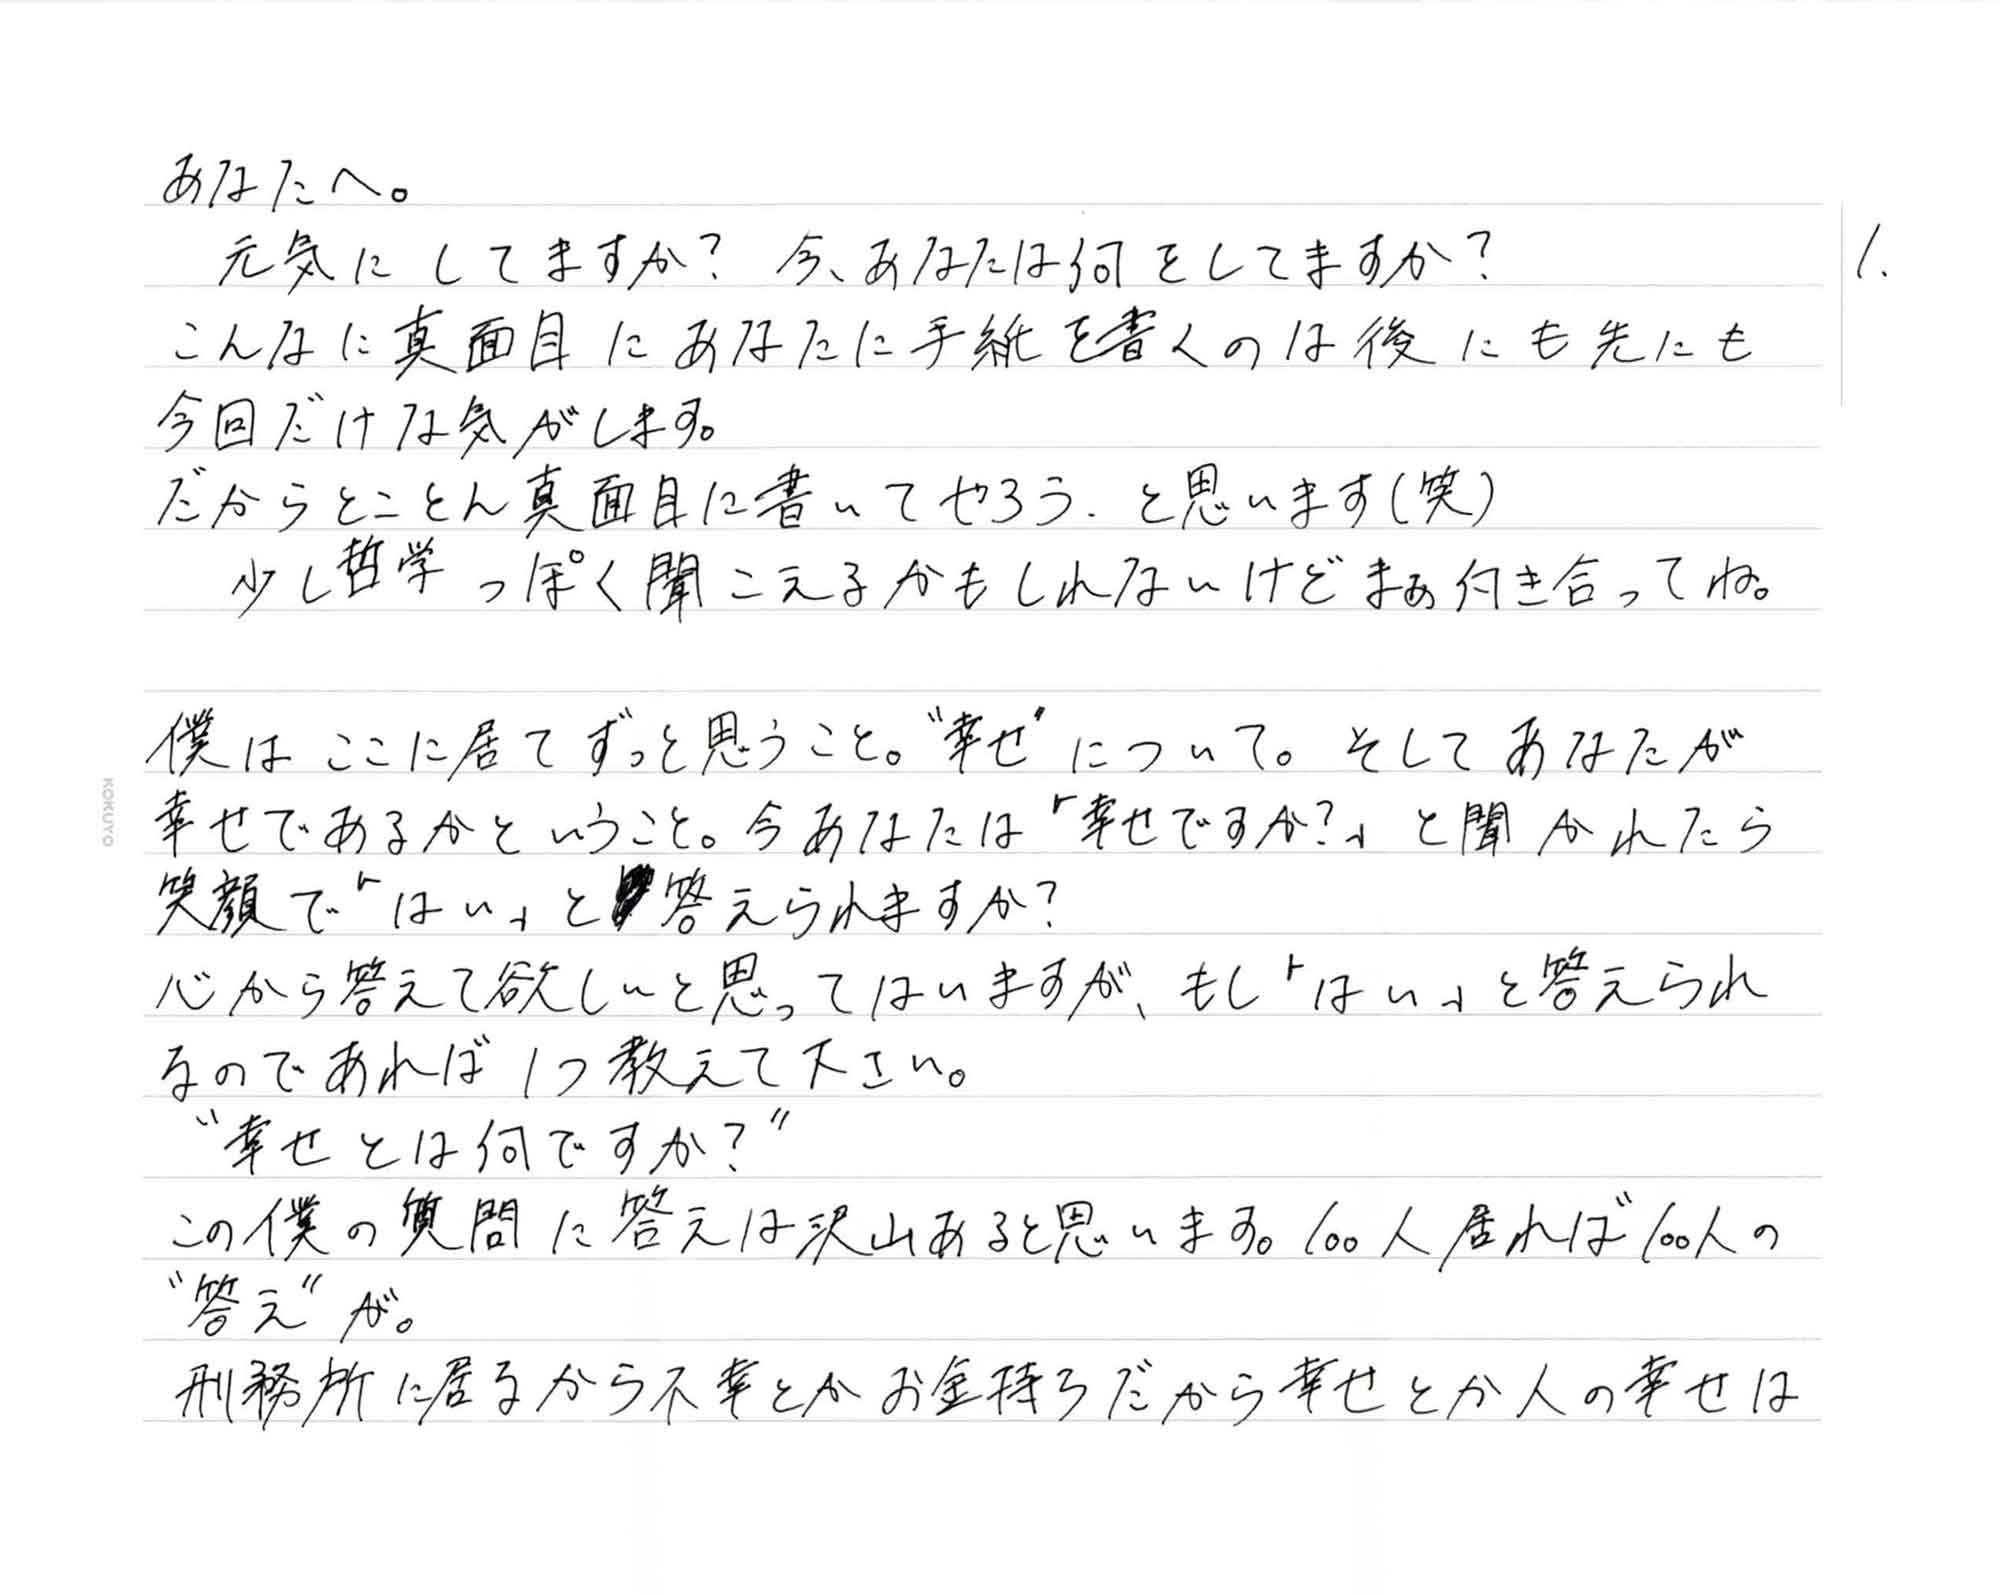 あなたへ。
元気にしてますか? 今、あなたは何をしてますか?
1.
こんなに真面目にあなたに手紙を書くのは後にも先にも
今回だけな気がします。
だからとことん真面目に書いてやろう.と思います(笑)
少し哲学っぽく聞こえるかもしれないけどまぁ付き合ってね。
僕はここに居てずっと思うこと。"幸せ"について。そしてあなたが
幸せであるかということ。今あなたは「幸せですか?」と聞かれたら
笑顔で「はい」と答えられますか?
心から答えて欲しいと思ってはいますが、もし「はい」と答えられ
るのであれば1つ教えて下さい。
"幸せとは何ですか?"
この僕の質問に答えは沢山あると思います。100人居れば100人の
"答え"が。
刑務所に居るから不幸とかお金持ちだから幸せとか人の幸せは
KOKUYO